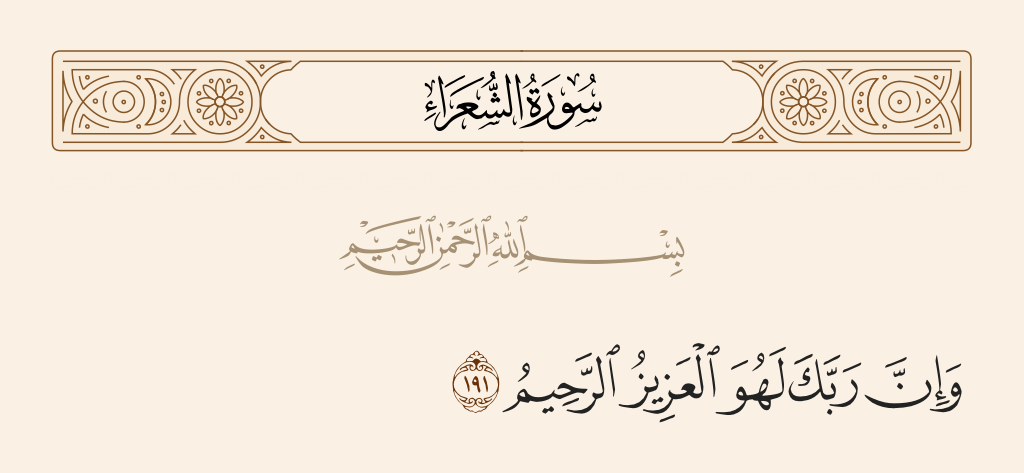 سُورَةُ الشُّعَرَاءِ
بِسْمِ ٱللَّهِ ٱلرَّحْمَٰنِ ٱلرَّحِيمِ
وَإِنَّ رَبَّكَ لَهُوَ ٱلْعَزِيزُ ٱلرَّحِيمُ ١٩١